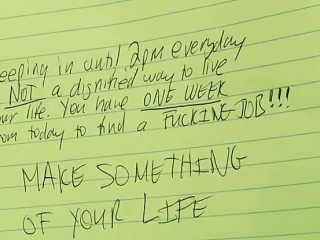 eeping in until 2pm everyday
NOT a dignified way to live
ur life. You have ONE WEEK
om today to find a FUCKING JOB!!!
MAKE SOMETHING
OF YOUR LIFE